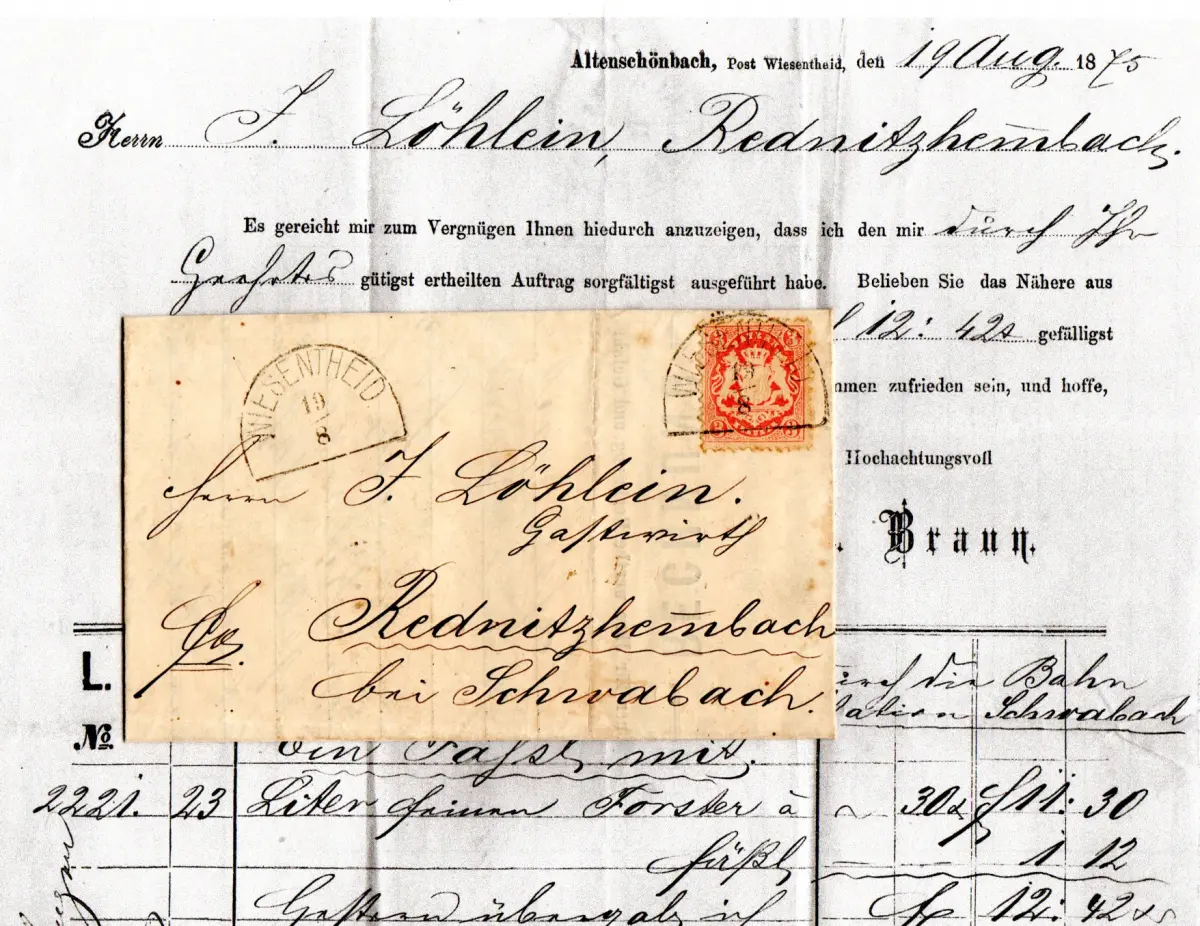 Altenschönbach, Post Wiesentheid, den 19 Aug. 1875
Herrn J. Löhlein, Rednitzhem̄bach.
Es gereicht mir zum Vergnügen Ihnen hiedurch anzuzeigen, dass ich den mir durch Ihr
Geehrtes gütigst ertheilten Auftrag sorgfältigst ausgeführt habe. Belieben Sie das Nähere aus
12: 42 gefälligst
men zufrieden sein, und hoffe,
Hochachtungsvoll
Braun.
WIESENTHEID
19
8
WIESENTHEID
19
8
3 3
Herrn J. Löhlein.
Gastwirth
Rednitzhem̄bach
bei Schwabach.
L.
durch die Bahn
Station Schwabach
No.
Ein Fässl mit.
2221. 23 Liter feinen Forster à 30 f 11: 30
fäßl 1 12
Gestern übergab ich f 12: 42